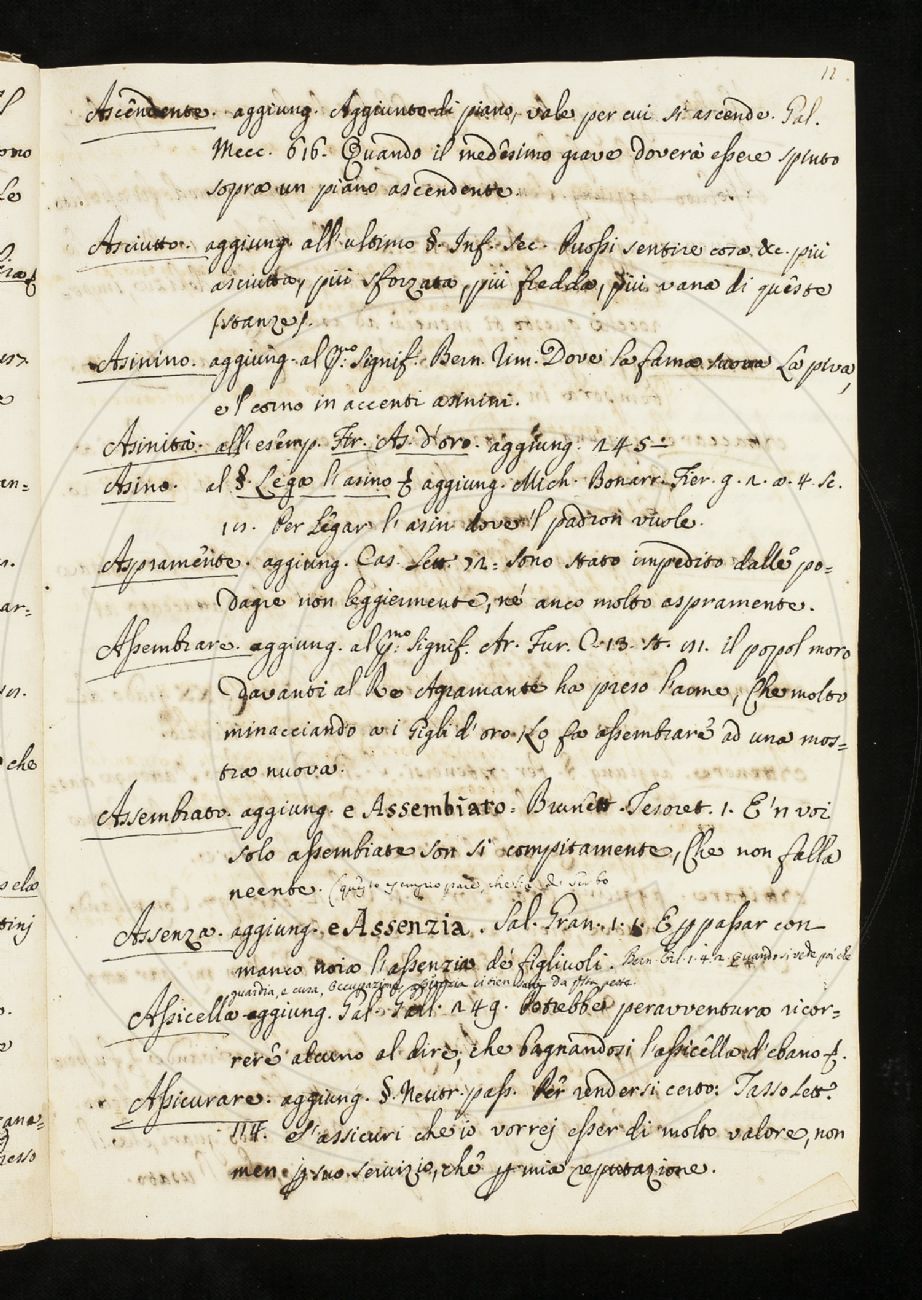 12.
Ascendente. aggiung. Aggiunto di piano, vale per cui si ascende. Gal.
Mecc. 616. Quando il medesimo grave doverà essere spinto
sopra un piano ascendente.
Asciutto. aggiung. all'ultimo §. Inf. Sec. Puossi sentire cosa &c. più
asciutta, più sforzata, più fredda, più vana di queste
(stanze).
Asinino. aggiung. al p.mo signif. Bern. rim. Dove la fama suona La piva,
e 'l corno in accenti asinini.
Asinità. all'esemp. Fir. As. d'oro. aggiung. 245.
Asino. al §. Legar l'asino aggiung. Mich. Bonarr. Fier. g. 2. a. 4. sc.
Per legar l'asin dove 'l padron vuole.
Aspramente. aggiung. Cas. Lett. 72. Sono stato impedito dalle po=
dagre non leggiermente, nè anco molto aspramente.
Assembrare. aggiung. al p.mo signif. Ar. Fur. C. 13. St. il popol moro
Davanti al Re Agramante ha preso l'arme, Che molto
minacciando a i Gigli d'oro Lo fa assembrare ad una mos=
tra nuova.
Assembrato. aggiung. e Assembiato. Brunett. Tesoret. 1. E 'n voi
solo assembiate Son sì compitamente, Che non falla
neente.
Assenza. aggiung. e Assenzia. Sal. Gran. 1. 1. E p passar con
manco noia l'assenzia de' figliuoli. 1. 4. 2. Quando si vede poi che
guardia, e cura,
Assicella aggiung. Gal. Gall. 249. Potrebbe peravventura ricor=
rere alcuno al dire, che bagnandosi l'assicella d'ebano
Assicurare. aggiung. §. Neutr. pass. Per rendersi certo. Tasso Lett.
114. S'assicuri che io vorrej esser di molto valore, non
men p suo servizio, che p mia reputazione.